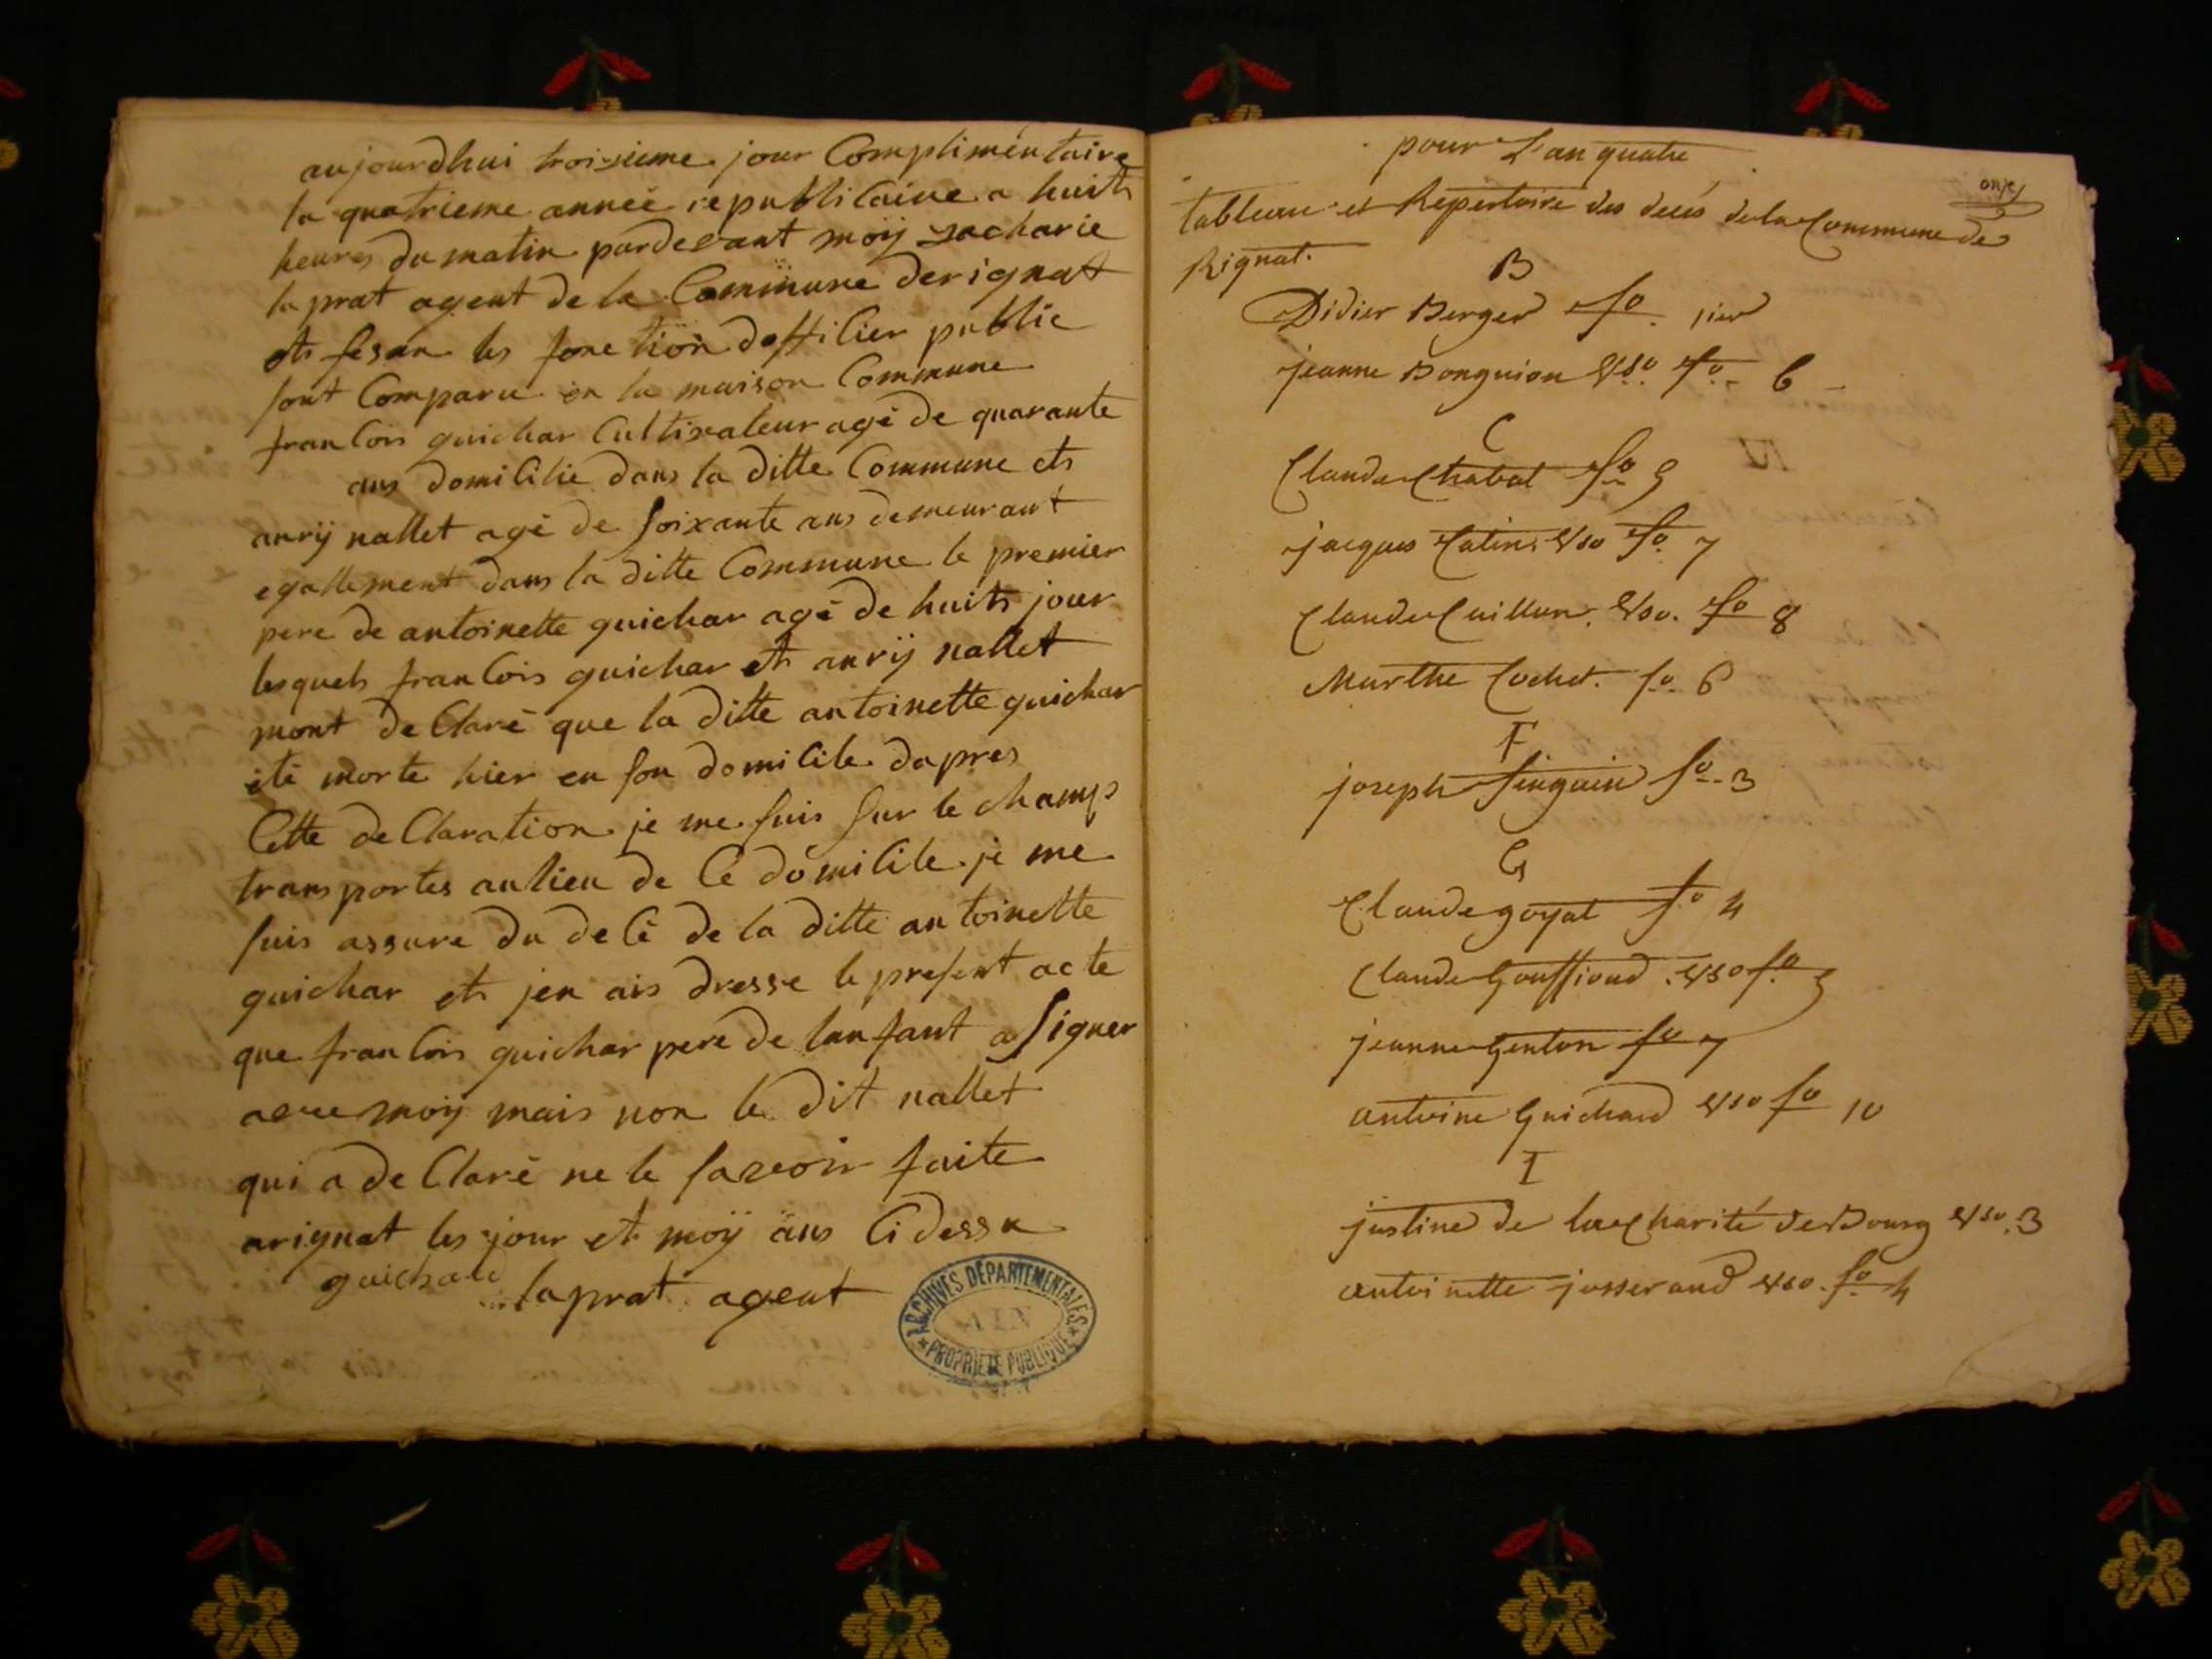 aujourdhui troisieme jour Complimentaire
la quatrieme année republicaine a huits
heures du matin pardevant moÿ zacharie
laprat agent de la Commune derignat
ets fesan les fonction dofficier public
sont Comparu en la maison Commune
francois guichar Cultivateur agé de quarante
ans domicilié dans la ditte Commune ets
anrÿ nallet agé de soixante ans demeurant
egallement dans la ditte Commune le premier
pere de antoinette guichar agé de huits jour
lesquels francois guichar ets anrÿ nallet
mont declaré que la ditte antoinette guichar
été morte hier en son domicile dapres
Cette declaration je me suis sur le champs
transportes au lieu de Ce domicile je me
suis assure du decé de la ditte antoinette
guichar ets jen ais dresse le present acte
que francois guichar pere de lanfant a signer
avec moÿ mais non le dit nallet
qui a declaré ne le savoir faite
arignat les jour et moÿ ans Cidessu
guichard laprat agent
ARCHIVES DÉPARTEMENTALES
AIN
PROPRIÉTÉ PUBLIQUE
pour L'an quatre
onze
tableau et Repertoire des decés de la Commune de
Rignat.
B
Didier Berger fo. 1ier
jeanne Bonguion vso fo. 6
C
Claude Chabal fo 9
jacques Catin vso fo 7
Claude Cuillun vso. fo 8
Marthe Cochet. fo. 6
F
joseph finguin fo. 3
G
Claude goyat fo 4
Claude Gouffiond vso fo 9
jeanne Genton fo 7
antoine Guichard vso fo 10
I
justine de la Charité de Bourg vso. 3
antoinette josserand vso. fo 4